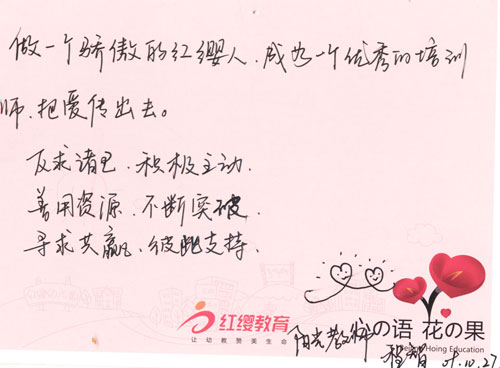 做一个骄傲的红缨人，成为一个优秀的培训
师，把爱传出去。
反求诸己，积极主动，
善用资源，不断突破，
寻求共赢，彼此支持，
红缨教育
让幼教赞美生命
の语 花の果
Hoing Education
阳光教师
程智
10.27